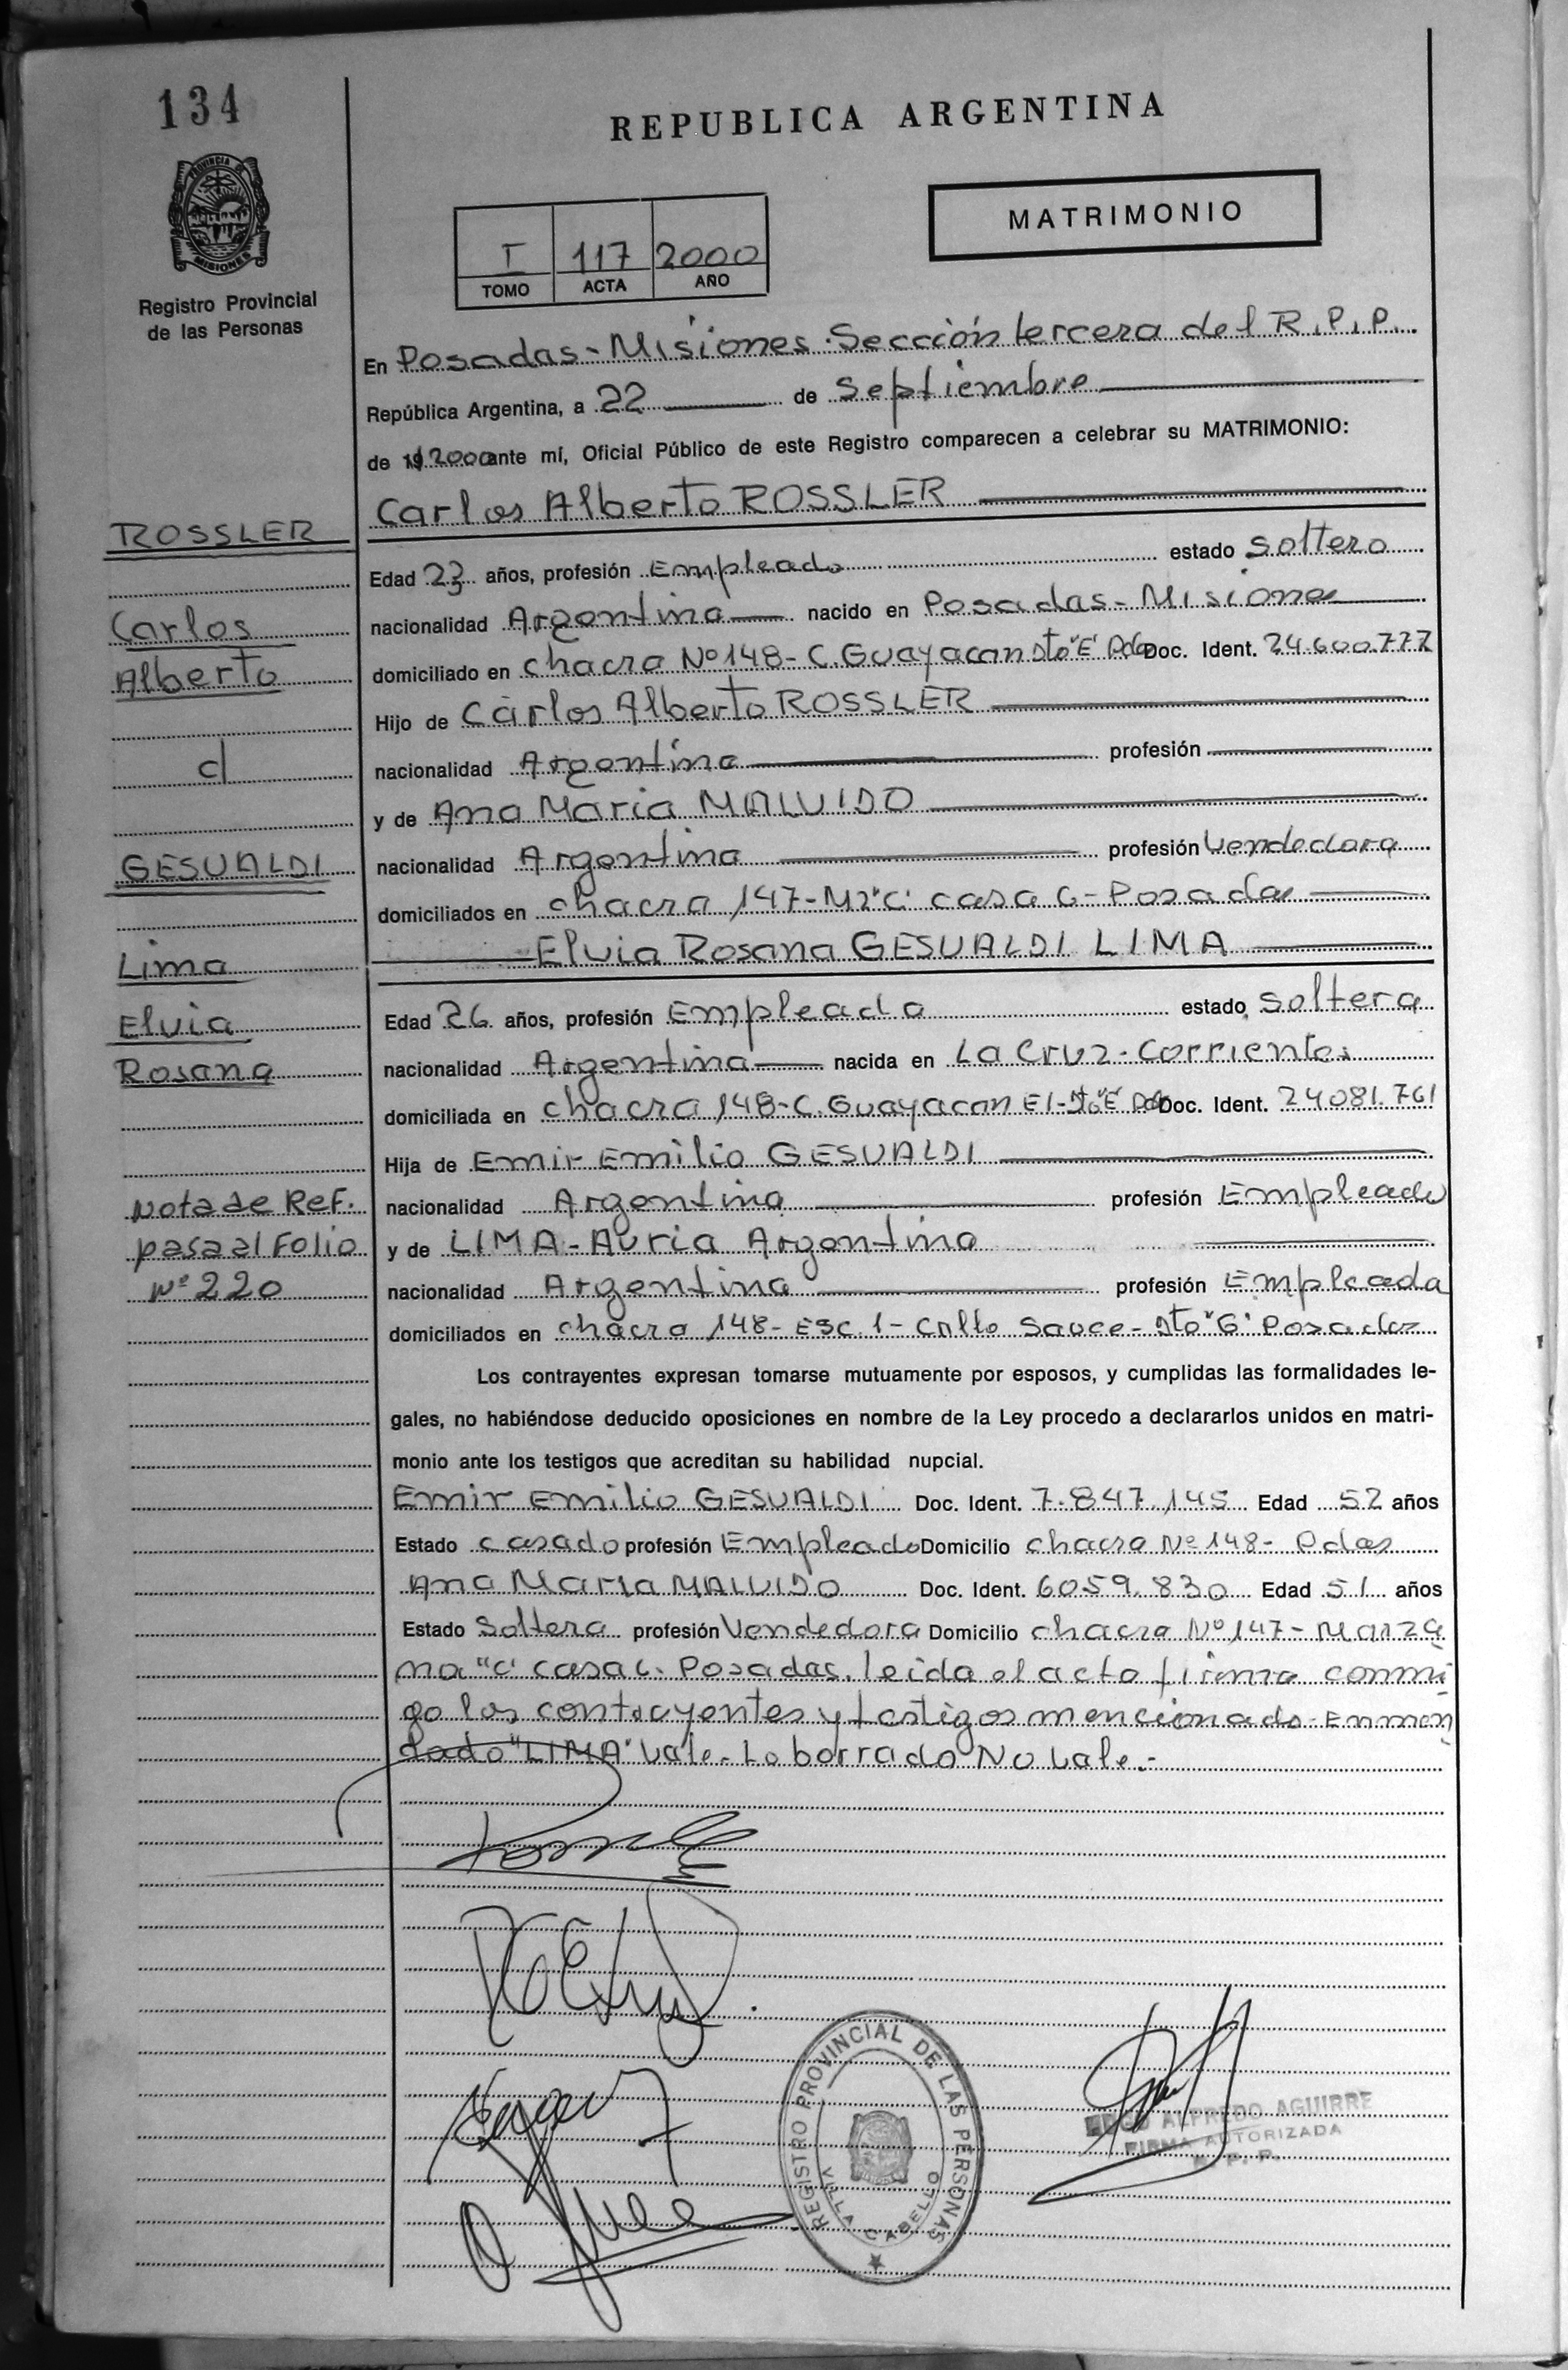 134
REPUBLICA ARGENTINA
PROVINCIA DE
MISIONES
Registro Provincial
de las Personas
I 117 2000
TOMO ACTA AÑO
MATRIMONIO
En Posadas - Misiones - Sección tercera del R.P.P.
República Argentina, a 22 de Septiembre
de 2000 ante mí, Oficial Público de este Registro comparecen a celebrar su MATRIMONIO:
Carlos Alberto ROSSLER
ROSSLER
Edad 23 años, profesión Empleado estado soltero
Carlos
nacionalidad Argentina nacido en Posadas - Misiones
Alberto
domiciliado en chacra Nº 148 - C. Guayacan Dto "E" Pdas Doc. Ident. 24.600.777
Hijo de Carlos Alberto ROSSLER
c/
nacionalidad Argentina profesión
y de Ana Maria MALVIDO
GESUALDI
nacionalidad Argentina profesión Vendedora
domiciliados en chacra 147 - Mz "C" casa 6 - Posadas
Lima
Elvia Rosana GESUALDI LIMA
Elvia
Edad 26 años, profesión Empleada estado soltera
Rosana
nacionalidad Argentina nacida en La Cruz - Corrientes
domiciliada en chacra 148 - C. Guayacan E1 - Dto "E" Pdas Doc. Ident. 24081.761
Hija de Emir Emilio GESUALDI
Nota de Ref.
nacionalidad Argentina profesión Empleado
pasa al Folio
y de LIMA - Auria Argentina
Nº 220
nacionalidad Argentina profesión Empleada
domiciliados en chacra 148 - ESC. 1 - Calle Sauce - Dto "G" Posadas
Los contrayentes expresan tomarse mutuamente por esposos, y cumplidas las formalidades le-
gales, no habiéndose deducido oposiciones en nombre de la Ley procedo a declararlos unidos en matri-
monio ante los testigos que acreditan su habilidad nupcial.
Emir Emilio GESUALDI Doc. Ident. 7.847.145 Edad 52 años
Estado casado profesión Empleado Domicilio chacra Nº 148 - Pdas
Ana Maria MALVIDO Doc. Ident. 6059.830 Edad 51 años
Estado Soltera profesión Vendedora Domicilio chacra Nº 147 - Manza
na "C" casa 6 - Posadas. leida el acto firman conmi
go los contrayentes y testigos mencionado - Enmen
dado "LIMA" Vale - Lo borrado No Vale.-
REGISTRO PROVINCIAL DE LAS PERSONAS
VILLA CABELLO
ALFREDO AGUIRRE
FIRMA AUTORIZADA
R. P. P.